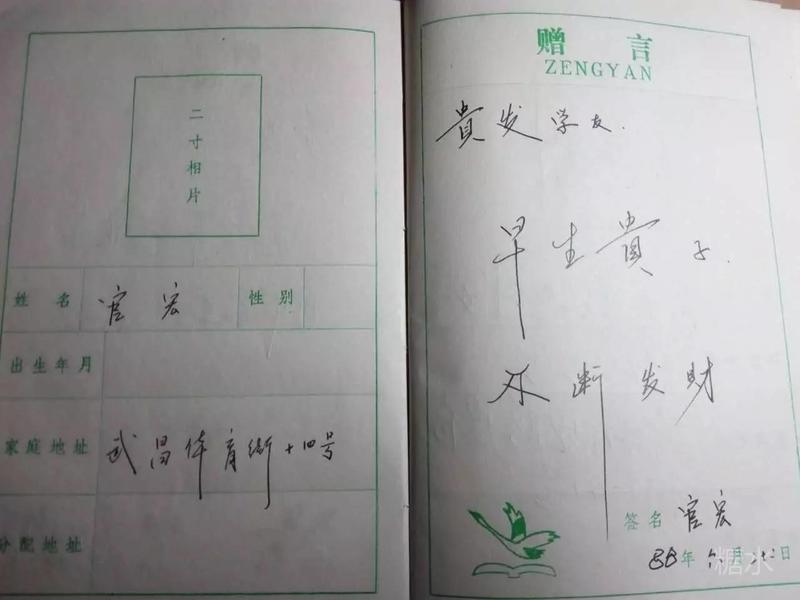 二寸相片
姓名 官宏 性别
出生年月
家庭地址 武昌体育街十四号
分配地址
赠言
ZENGYAN
貴发学友.
早生貴子.
不断发财
签名 官宏
88年 月 日
糖水